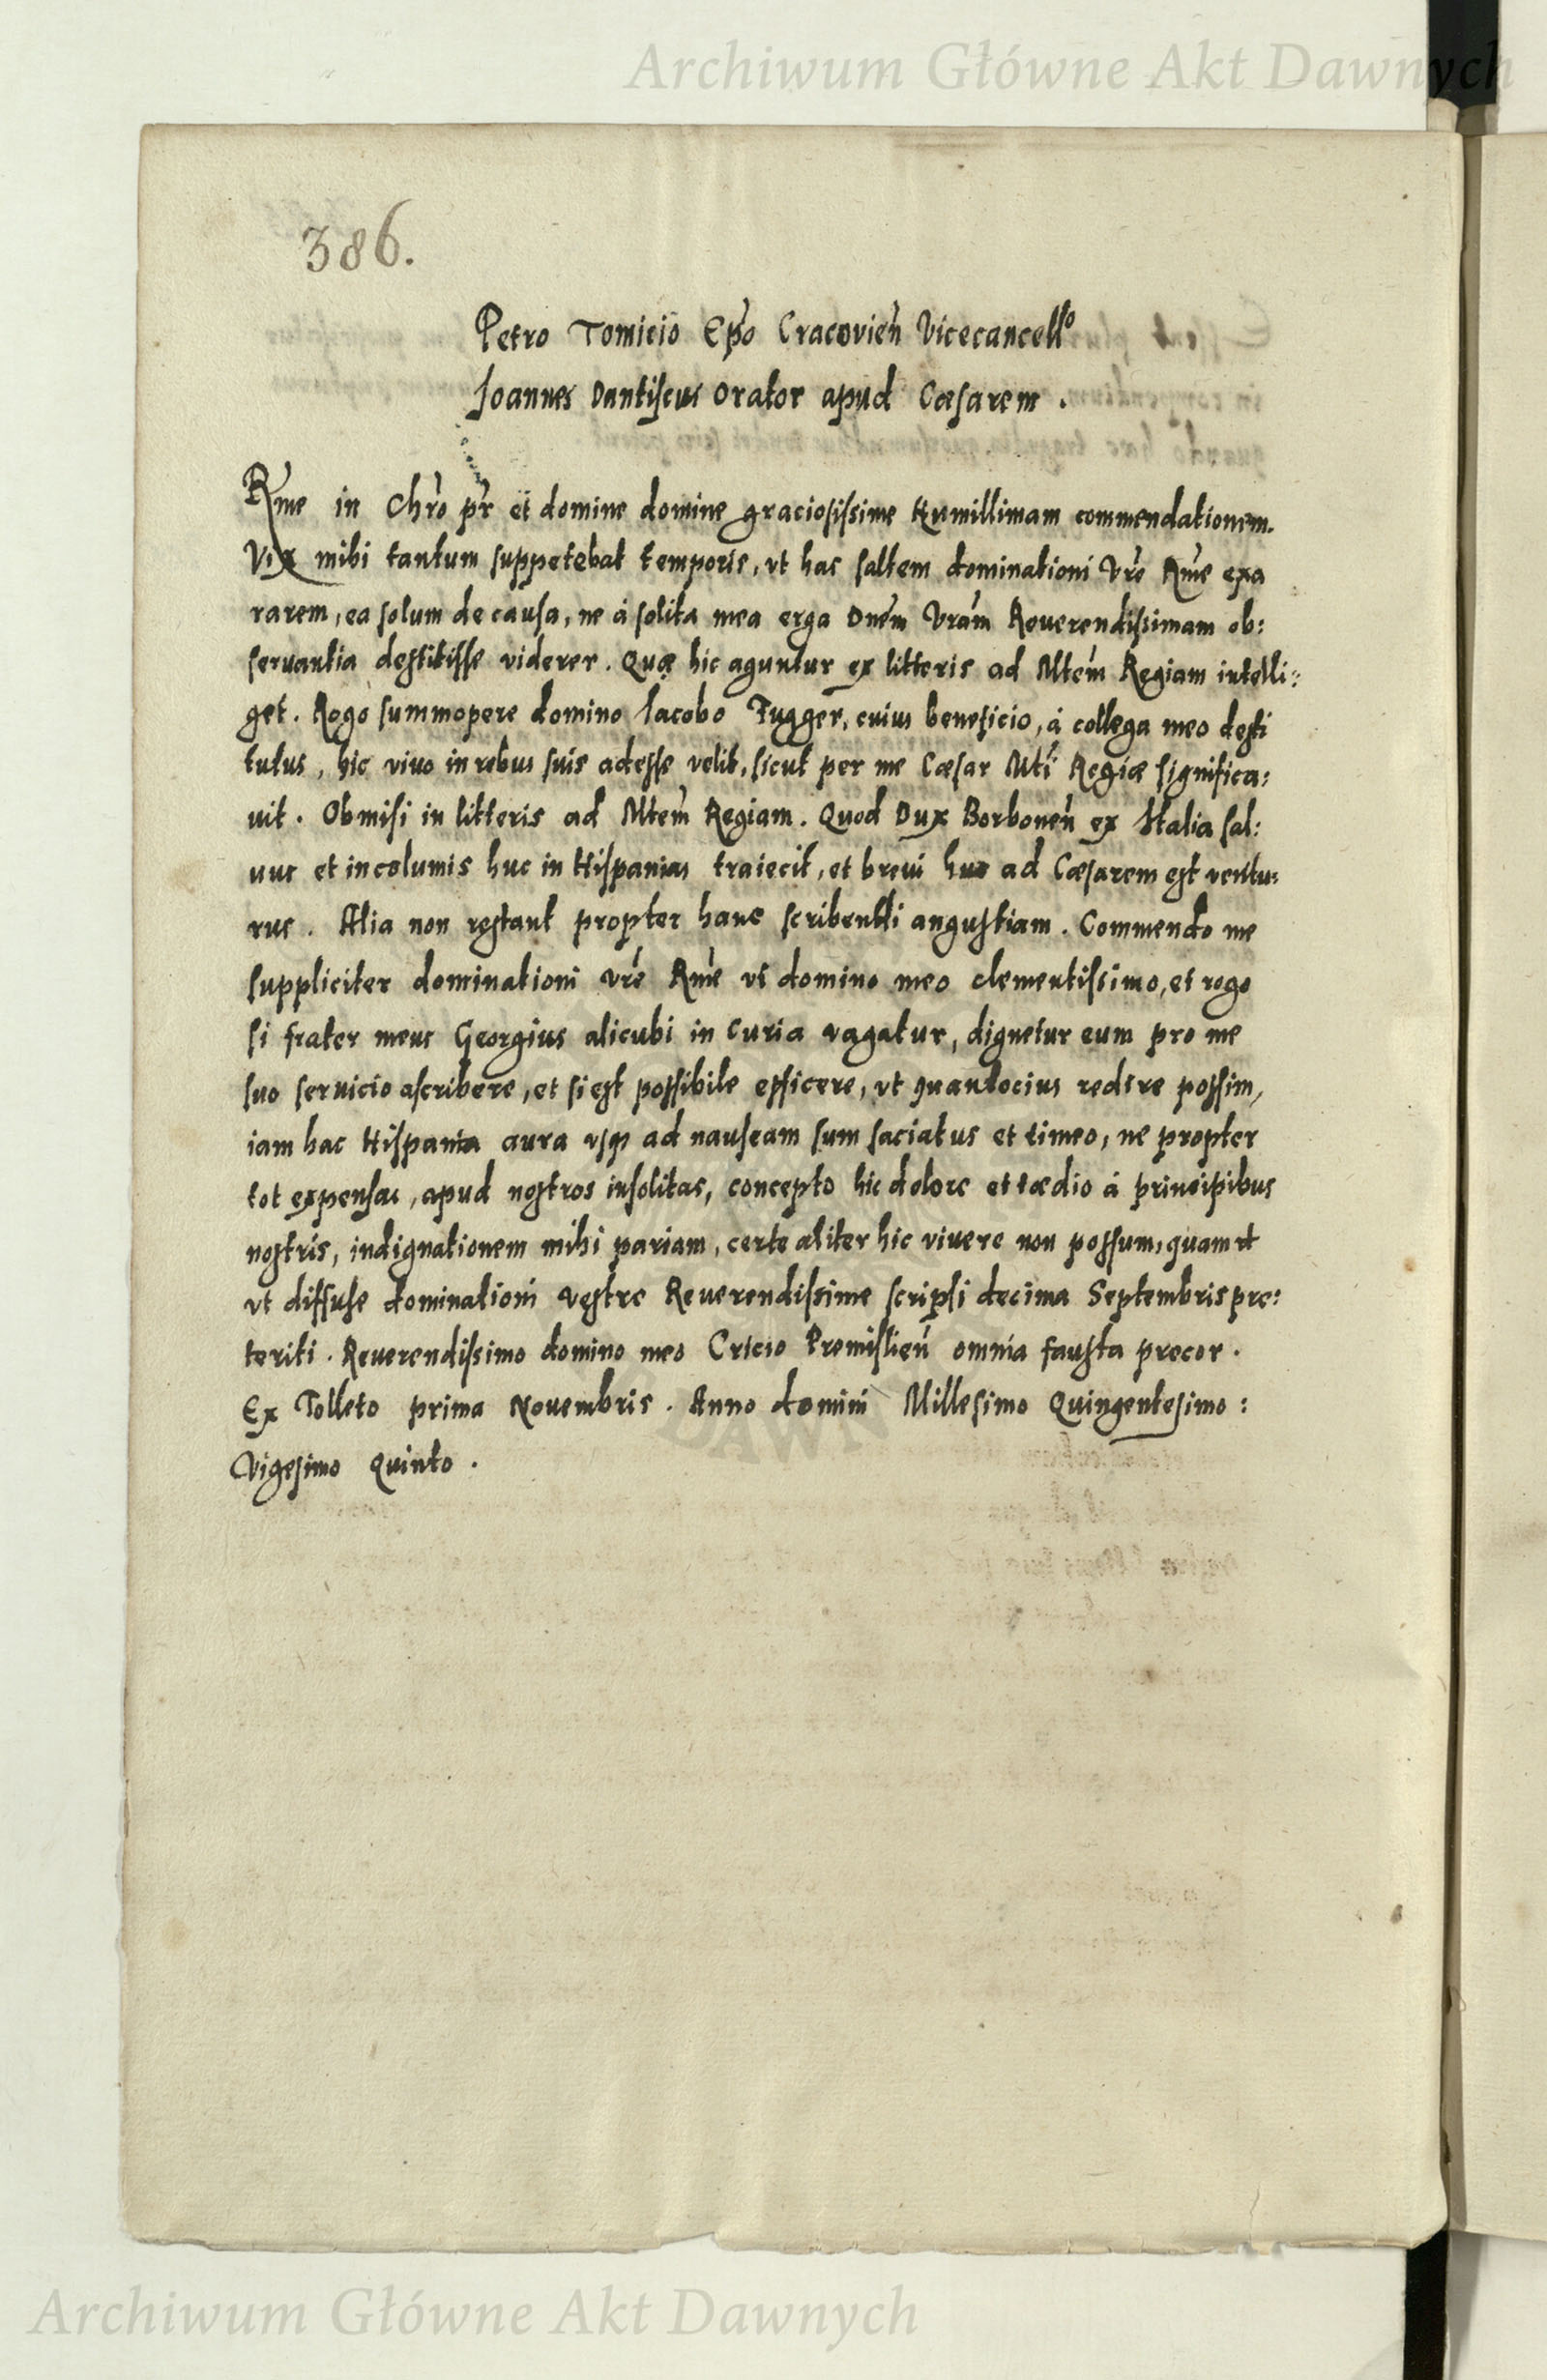 Archiwum Główne Akt Dawnych
386.
Petro Tomicio Ep̃o Cracovien̄ Vicecancellº
Joannes Dantiscus Orator apud Cæsarem .
Rm̃e in Chr̃o pr̃ et domine domine graciosissime Humillimam commendationem.
Vix mihi tantum suppetebat temporis, vt has saltem dominationi Vrẽ Rm̃e exa
rarem, ea solum de causa, ne à solita mea erga Dnẽm Vrãm Reuerendissimam ob:
seruantia destitisse viderer. Quæ hic aguntur ex litteris ad Mtẽm Regiam intelli:
get. Rogo summopere domino Iacobo Fugger, cuius beneficio, à collega meo desti
tutus, hic viuo in rebus suis adesse velit, sicut per me Cæsar Mtĩ Regiæ significa:
uit. Obmisi in litteris ad Mtẽm Regiam. Quod Dux Borbonen̄ ex Italia sal:
uus et incolumis huc in Hispanias traiecit, et brevi huc ad Cæsarem est ventu:
rus. Alia non restant propter hanc scribendi angustiam. Commendo me
suppliciter dominationi vrẽ Rm̃e vt domino meo clementissimo, et rogo
si frater meus Georgius alicubi in Curia vagatur, dignetur eum pro me
suo seruicio ascribere, et si est possibile efficere, vt quantocius redire possim,
iam hac Hispania aura vsq̃ ad nauseam sum saciatus et timeo, ne propter
tot expensas, apud nostros insolitas, concepto hic dolore et tædio à principibus
nostris, indignationem mihi pariam, certe aliter hic viuere non possum, quam vt
vt diffuse dominationi vestre Reuerendissime scripsi decima Septembris pre:
teriti. Reuerendissimo domino meo Cricio Premislien̄ omnia fausta precor.
Ex Tolleto prima Nouembris. Anno domini Millesimo Quingentesimo :
Vigesimo Quinto .
Archiwum Główne Akt Dawnych